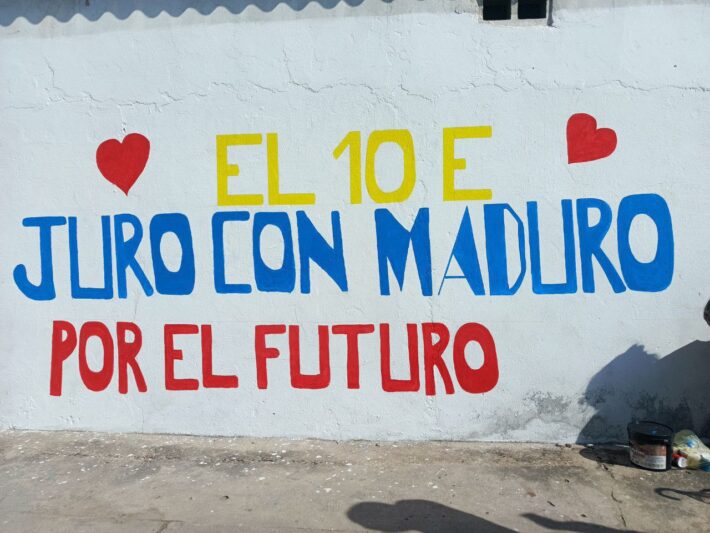 EL 10 E
JURO CON MADURO
POR EL FUTURO